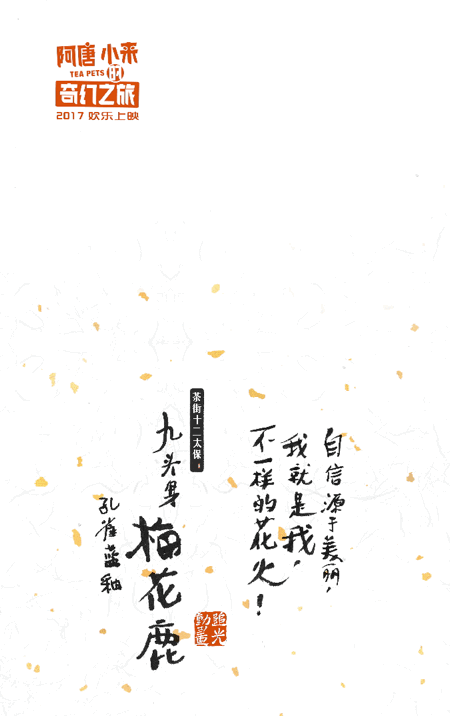 阿唐小来
TEA PETS 的
奇幻之旅
2017 欢乐上映
自信源于美丽，
我就是我，
不一样的花火！
茶街十二太保
九头身
梅花鹿
孔雀蓝釉
追光
動畫